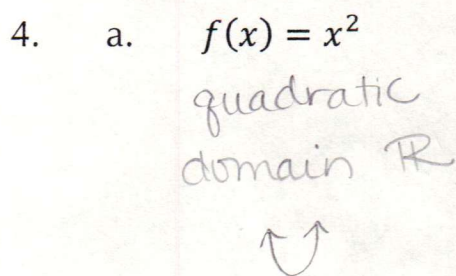 4. a. f(x) = x²
quadratic
domain ℝ